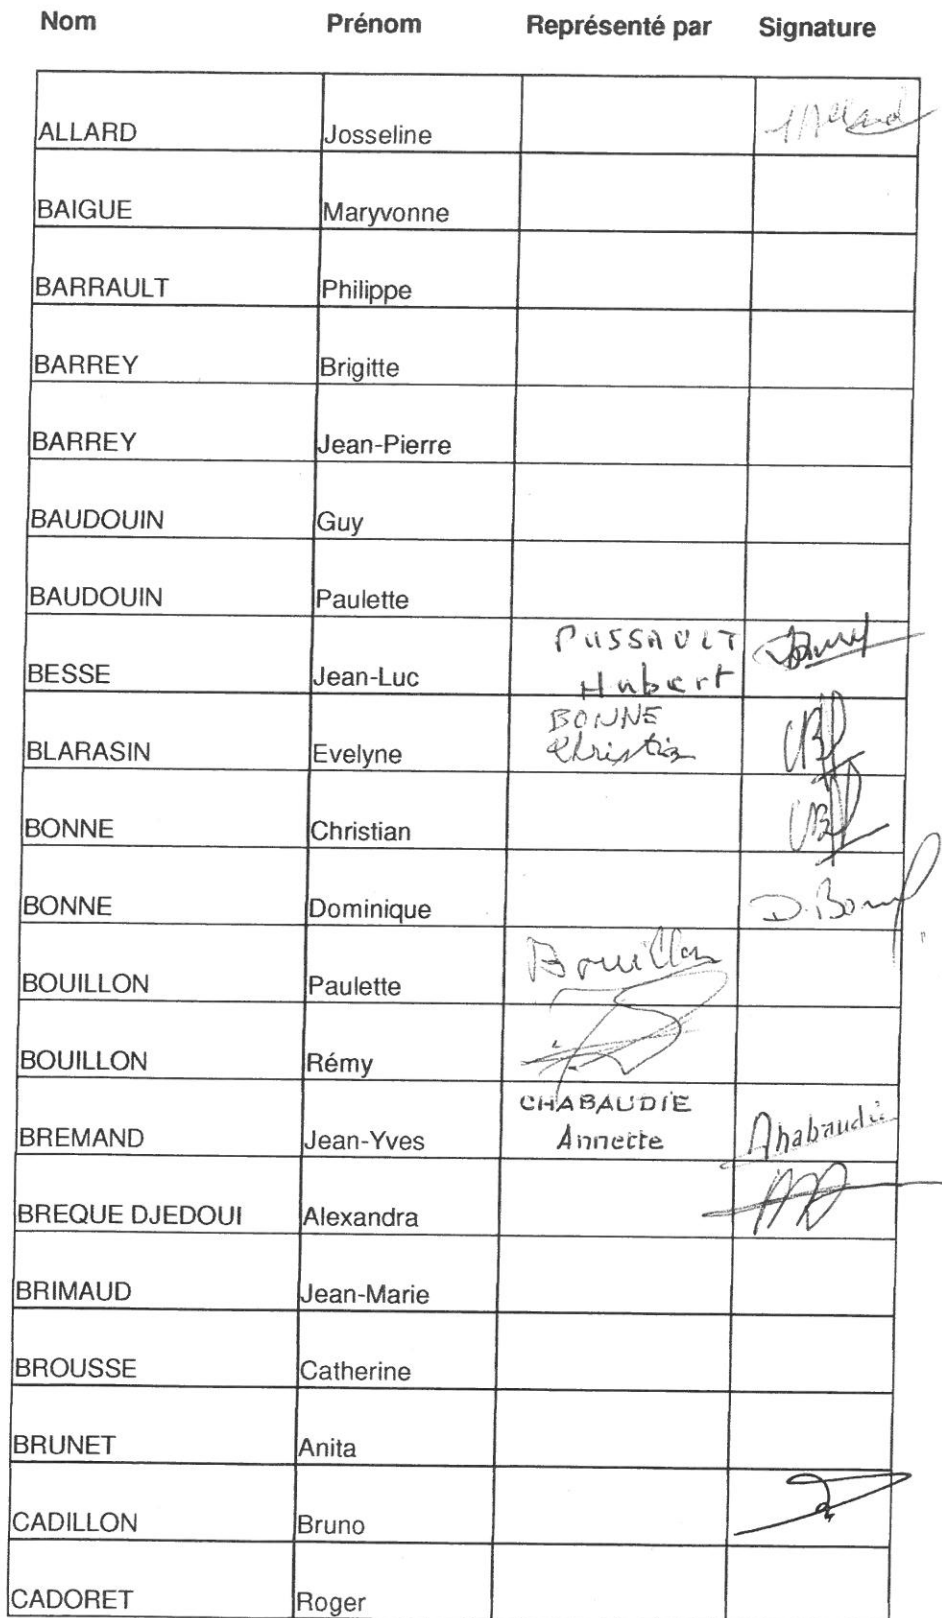 Nom Prénom Représenté par Signature
ALLARD Josseline Allard
BAIGUE Maryvonne
BARRAULT Philippe
BARREY Brigitte
BARREY Jean-Pierre
BAUDOUIN Guy
BAUDOUIN Paulette
BESSE Jean-Luc PUSSAULT Hubert
BLARASIN Evelyne BONNE Christian
BONNE Christian
BONNE Dominique D. Bonne
BOUILLON Paulette Bouillon
BOUILLON Rémy
BREMAND Jean-Yves CHABAUDIE Annette Chabaudie
BREQUE DJEDOUI Alexandra
BRIMAUD Jean-Marie
BROUSSE Catherine
BRUNET Anita
CADILLON Bruno
CADORET Roger